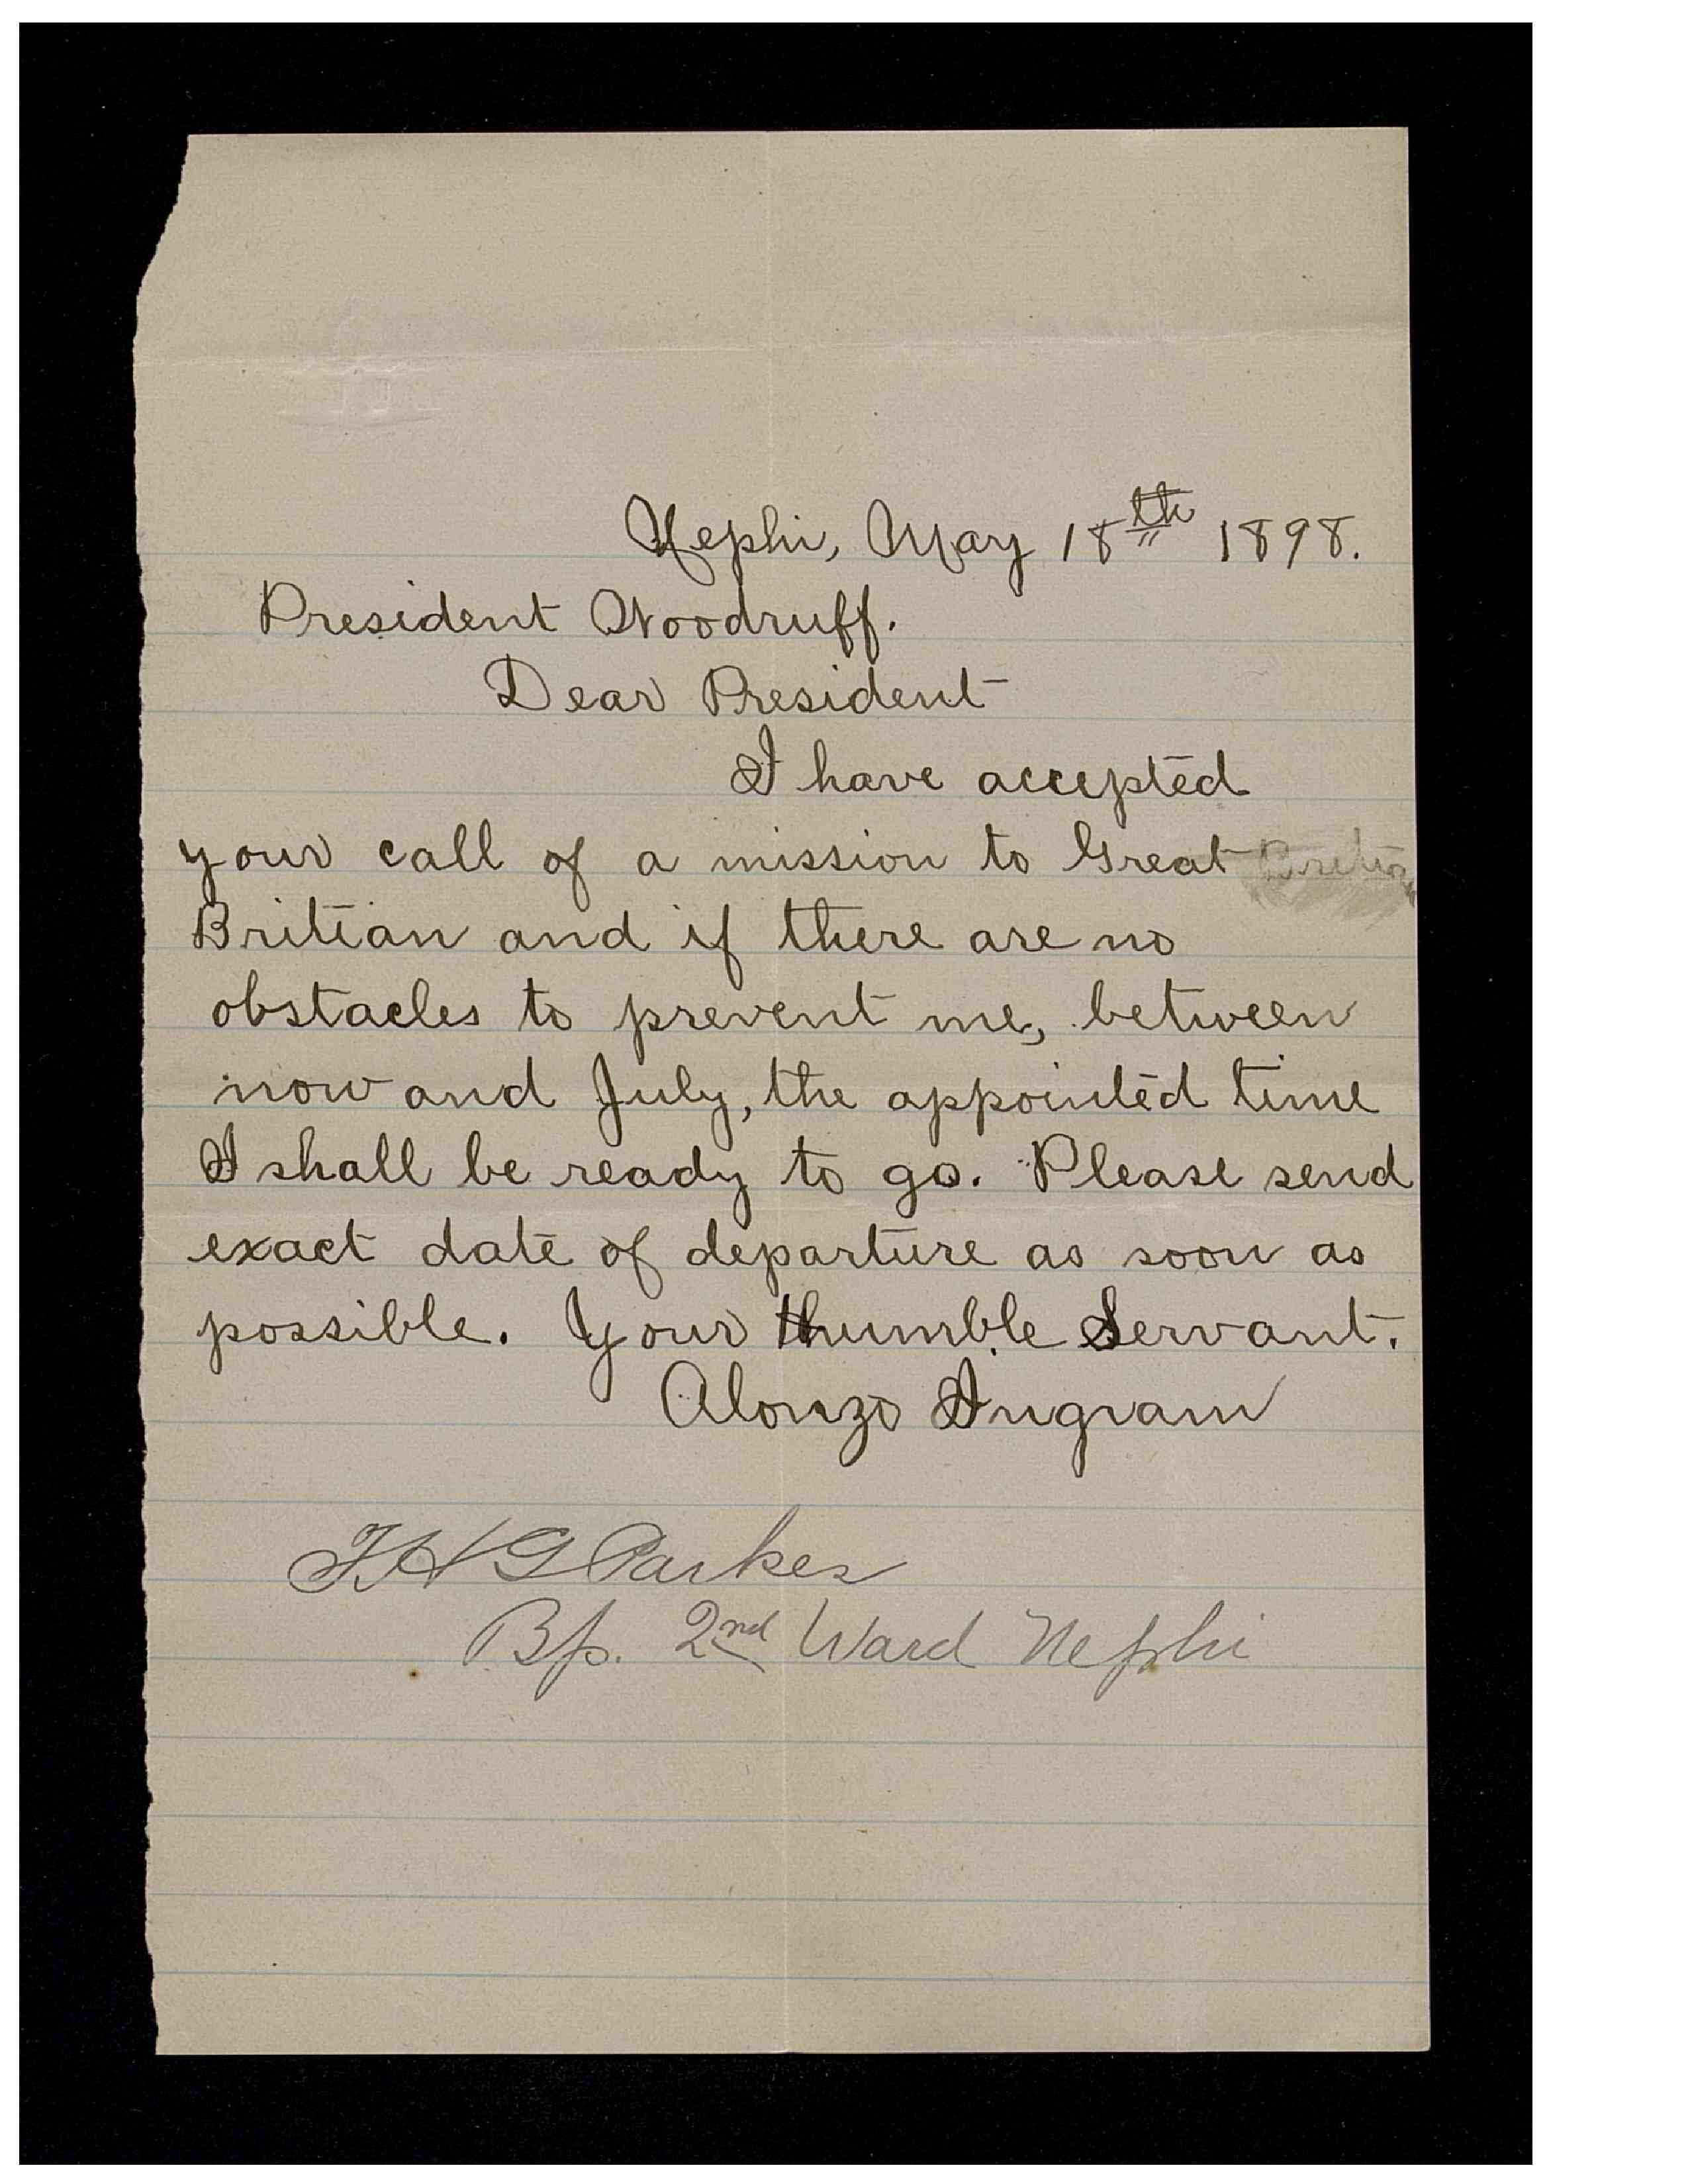 Nephi, May 18th 1898.
President Woodruff.
Dear President
I have accepted
your call of a mission to Great
Britian and if there are no
obstacles to prevent me, between
now and July, the appointed time
I shall be ready to go. Please send
exact date of departure as soon as
possible. Your humble Servant.
Alonzo Ingram
T H G Parkes
Bp. 2nd Ward Nephi